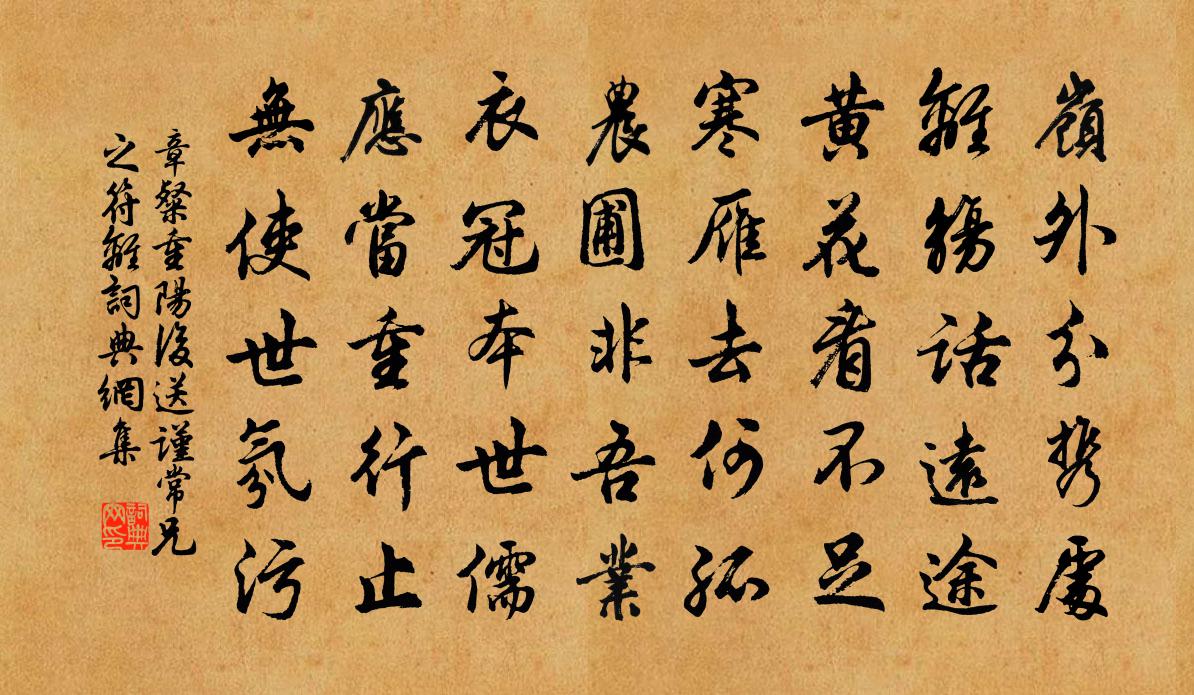 嶺外分携處
離觴話遠途
黄花看不足
寒雁去何孤
農圃非吾業
衣冠本世儒
應當重行止
無使世氛污
章粲重陽後送謹常兄
之符離詞典網集
詞典网印